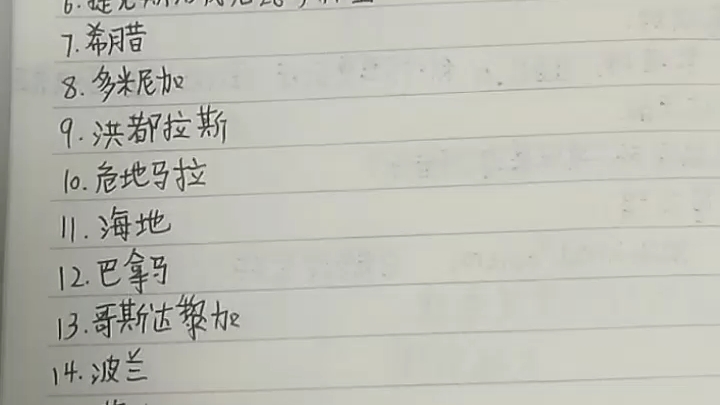 7. 希腊
8. 多米尼加
9. 洪都拉斯
10. 危地马拉
11. 海地
12. 巴拿马
13. 哥斯达黎加
14. 波兰